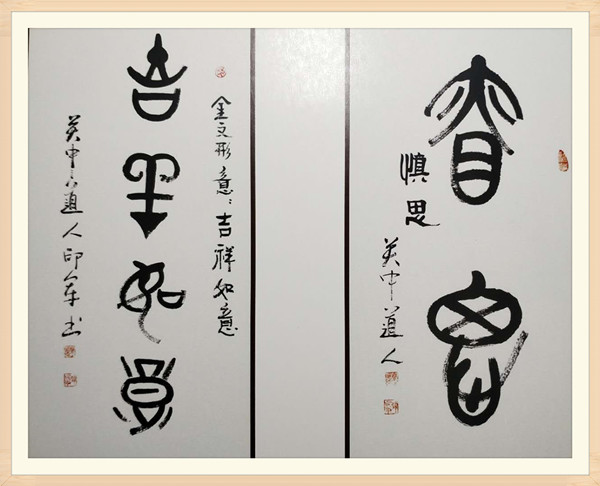 慎思
慎思
美中道人
吉祥如意
金文形意：吉祥如意
美中道人印军书